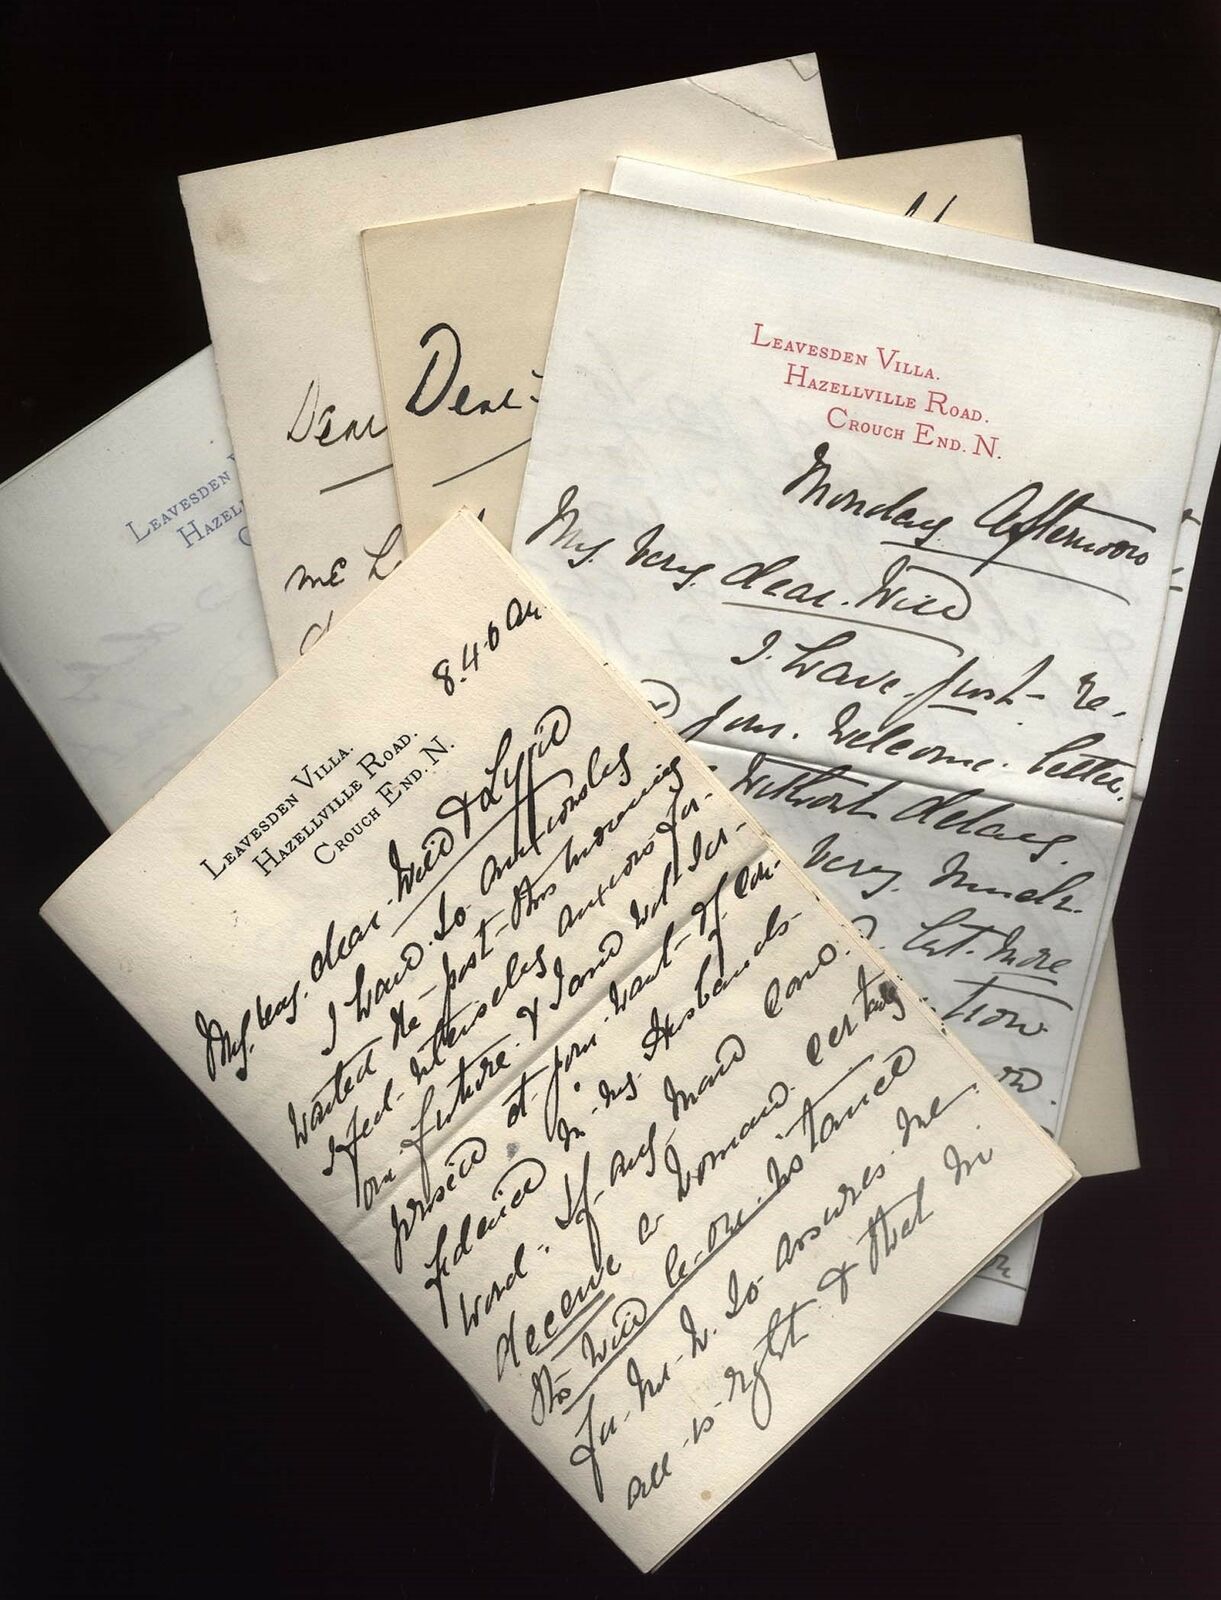 LEAVESDEN VILLA.
HAZELLVILLE ROAD.
CROUCH END. N.
Monday Afternoon
My very dear Will
I have just re-
your welcome letter
without delay.
very much
but more
tion
LEAVESDEN V
HAZEL
C
Dear
Mc L
Dear
8.40 am
LEAVESDEN VILLA.
HAZELLVILLE ROAD.
CROUCH END. N.
My very dear Will & Lizzie
I have so anxiously
waited the post this morning
I feel intensely anxious for
our future & I am not sur-
prised at your want of con-
fidence in my Husbands
word. If any man could
deceive a woman certainly
this will be one instance
for Mr W. so assures me
all is right & that in